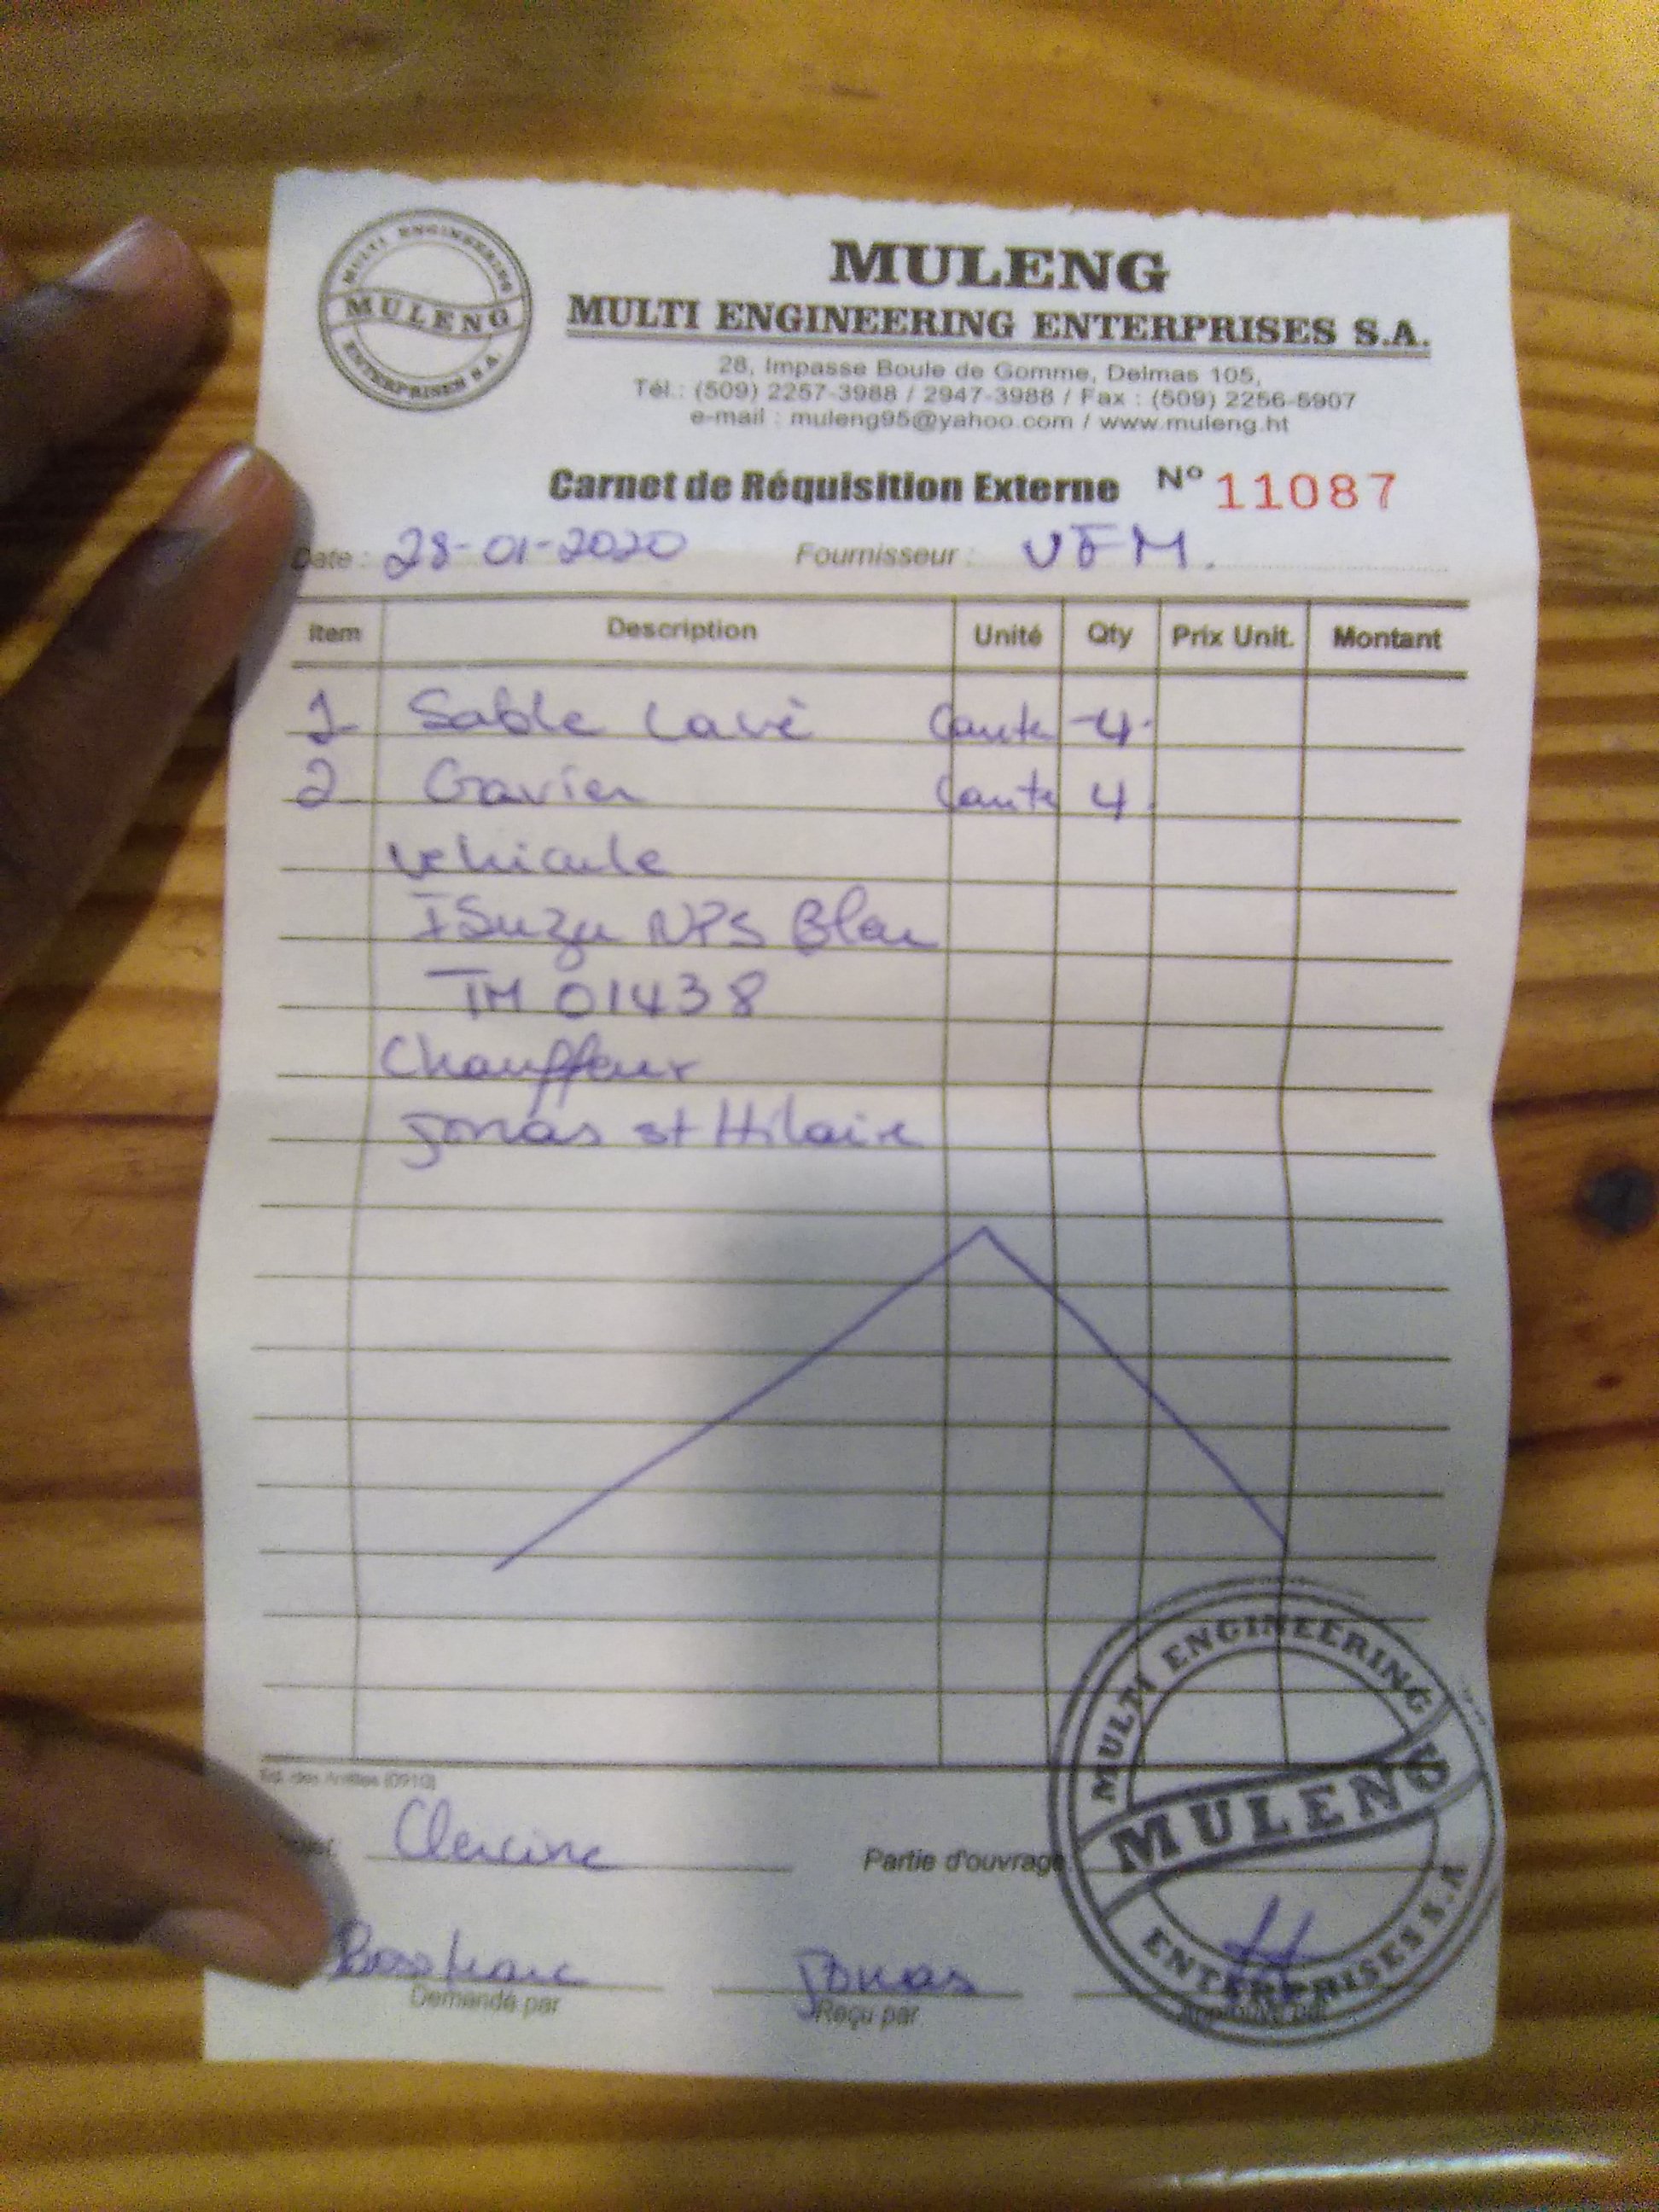 MULTI ENGINEERING
MULENG
ENTERPRISES S.A.
MULENG
MULTI ENGINEERING ENTERPRISES S.A.
28, Impasse Boule de Gomme, Delmas 105,
Tél.: (509) 2257-3988 / 2947-3988 / Fax : (509) 2256-5907
e-mail : muleng95@yahoo.com / www.muleng.ht
Carnet de Réquisition Externe Nº 11087
Date : 28-01-2020 Fournisseur : VFM.
Item Description Unité Qty Prix Unit. Montant
1 Sable Lavé -4-
2 Gravier 4
vehicule
ISuzu NPS Blan
TM 01438
Chauffeur
Jonas st Hilaire
Ed. des Antilles (0910)
Partie d'ouvrage
Jonas
Demandé par Reçu par Approuvé par
MULTI ENGINEERING
MULENG
ENTERPRISES S.A